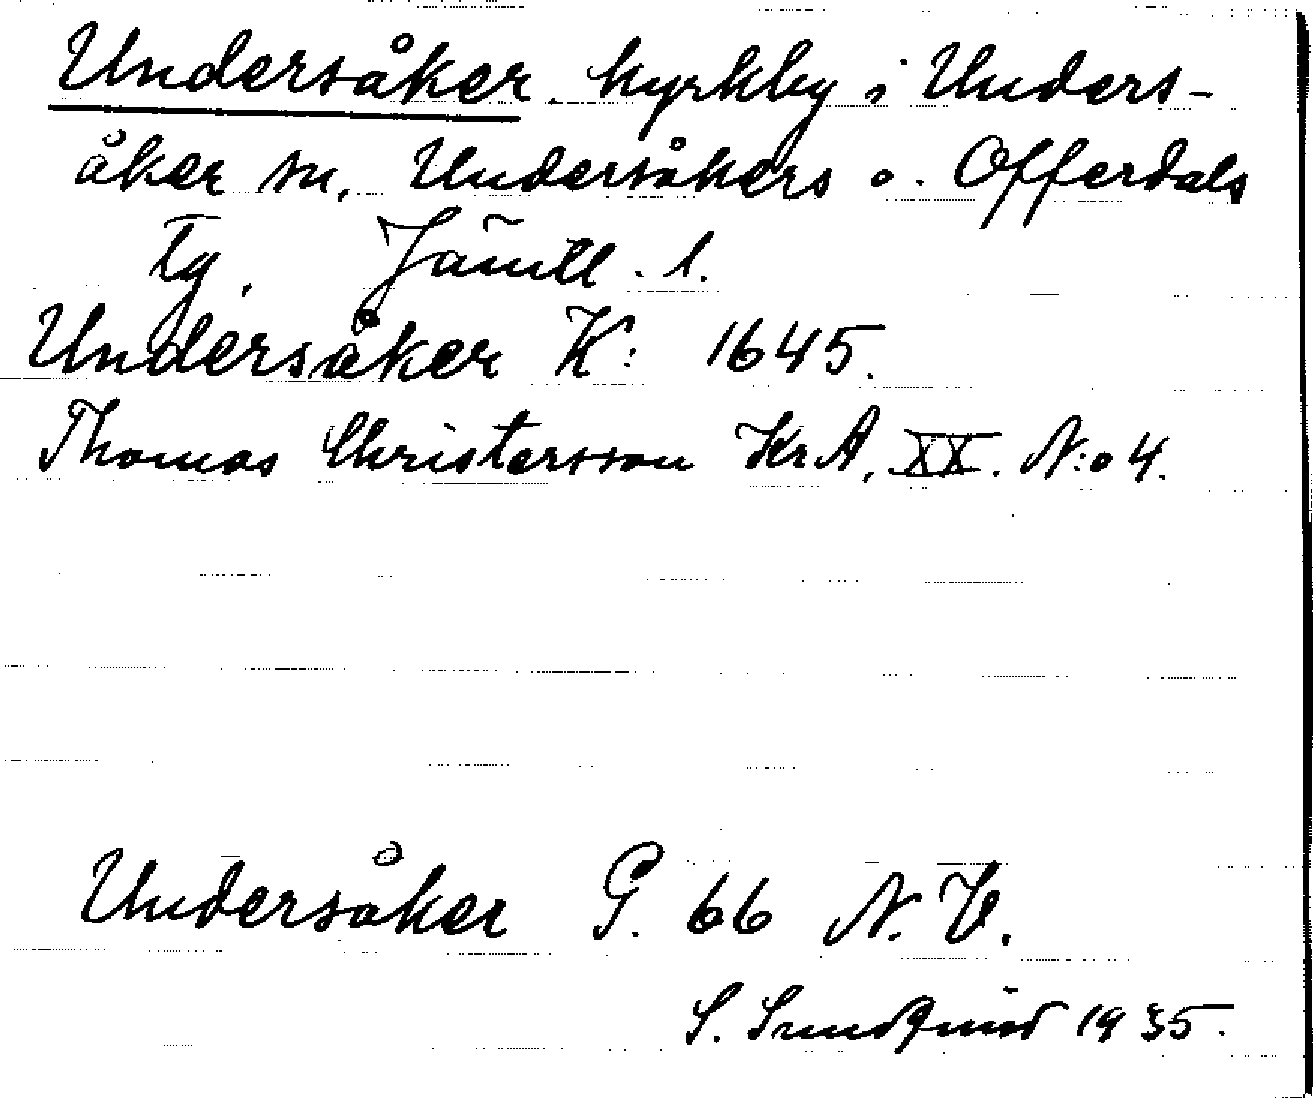 Undersåker. kyrkby i Unders-
åker sn. Undersåkers o. Offerdals
Tg. Jämtl. l.
Undersåker K: 1645.
Thomas Christersson KrA. XX. N:o 4.
Undersåker G. 66 N.V.
S. 1935.